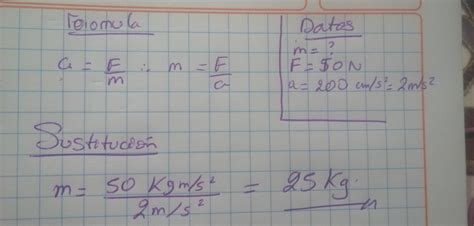 Fórmula
a = F/m ∴ m = F/a
Datos
m = ?
F = 50 N
a = 200 cm/s² = 2m/s²
Sustitución
m = 50 Kgm/s² / 2m/s² = 25 Kg.